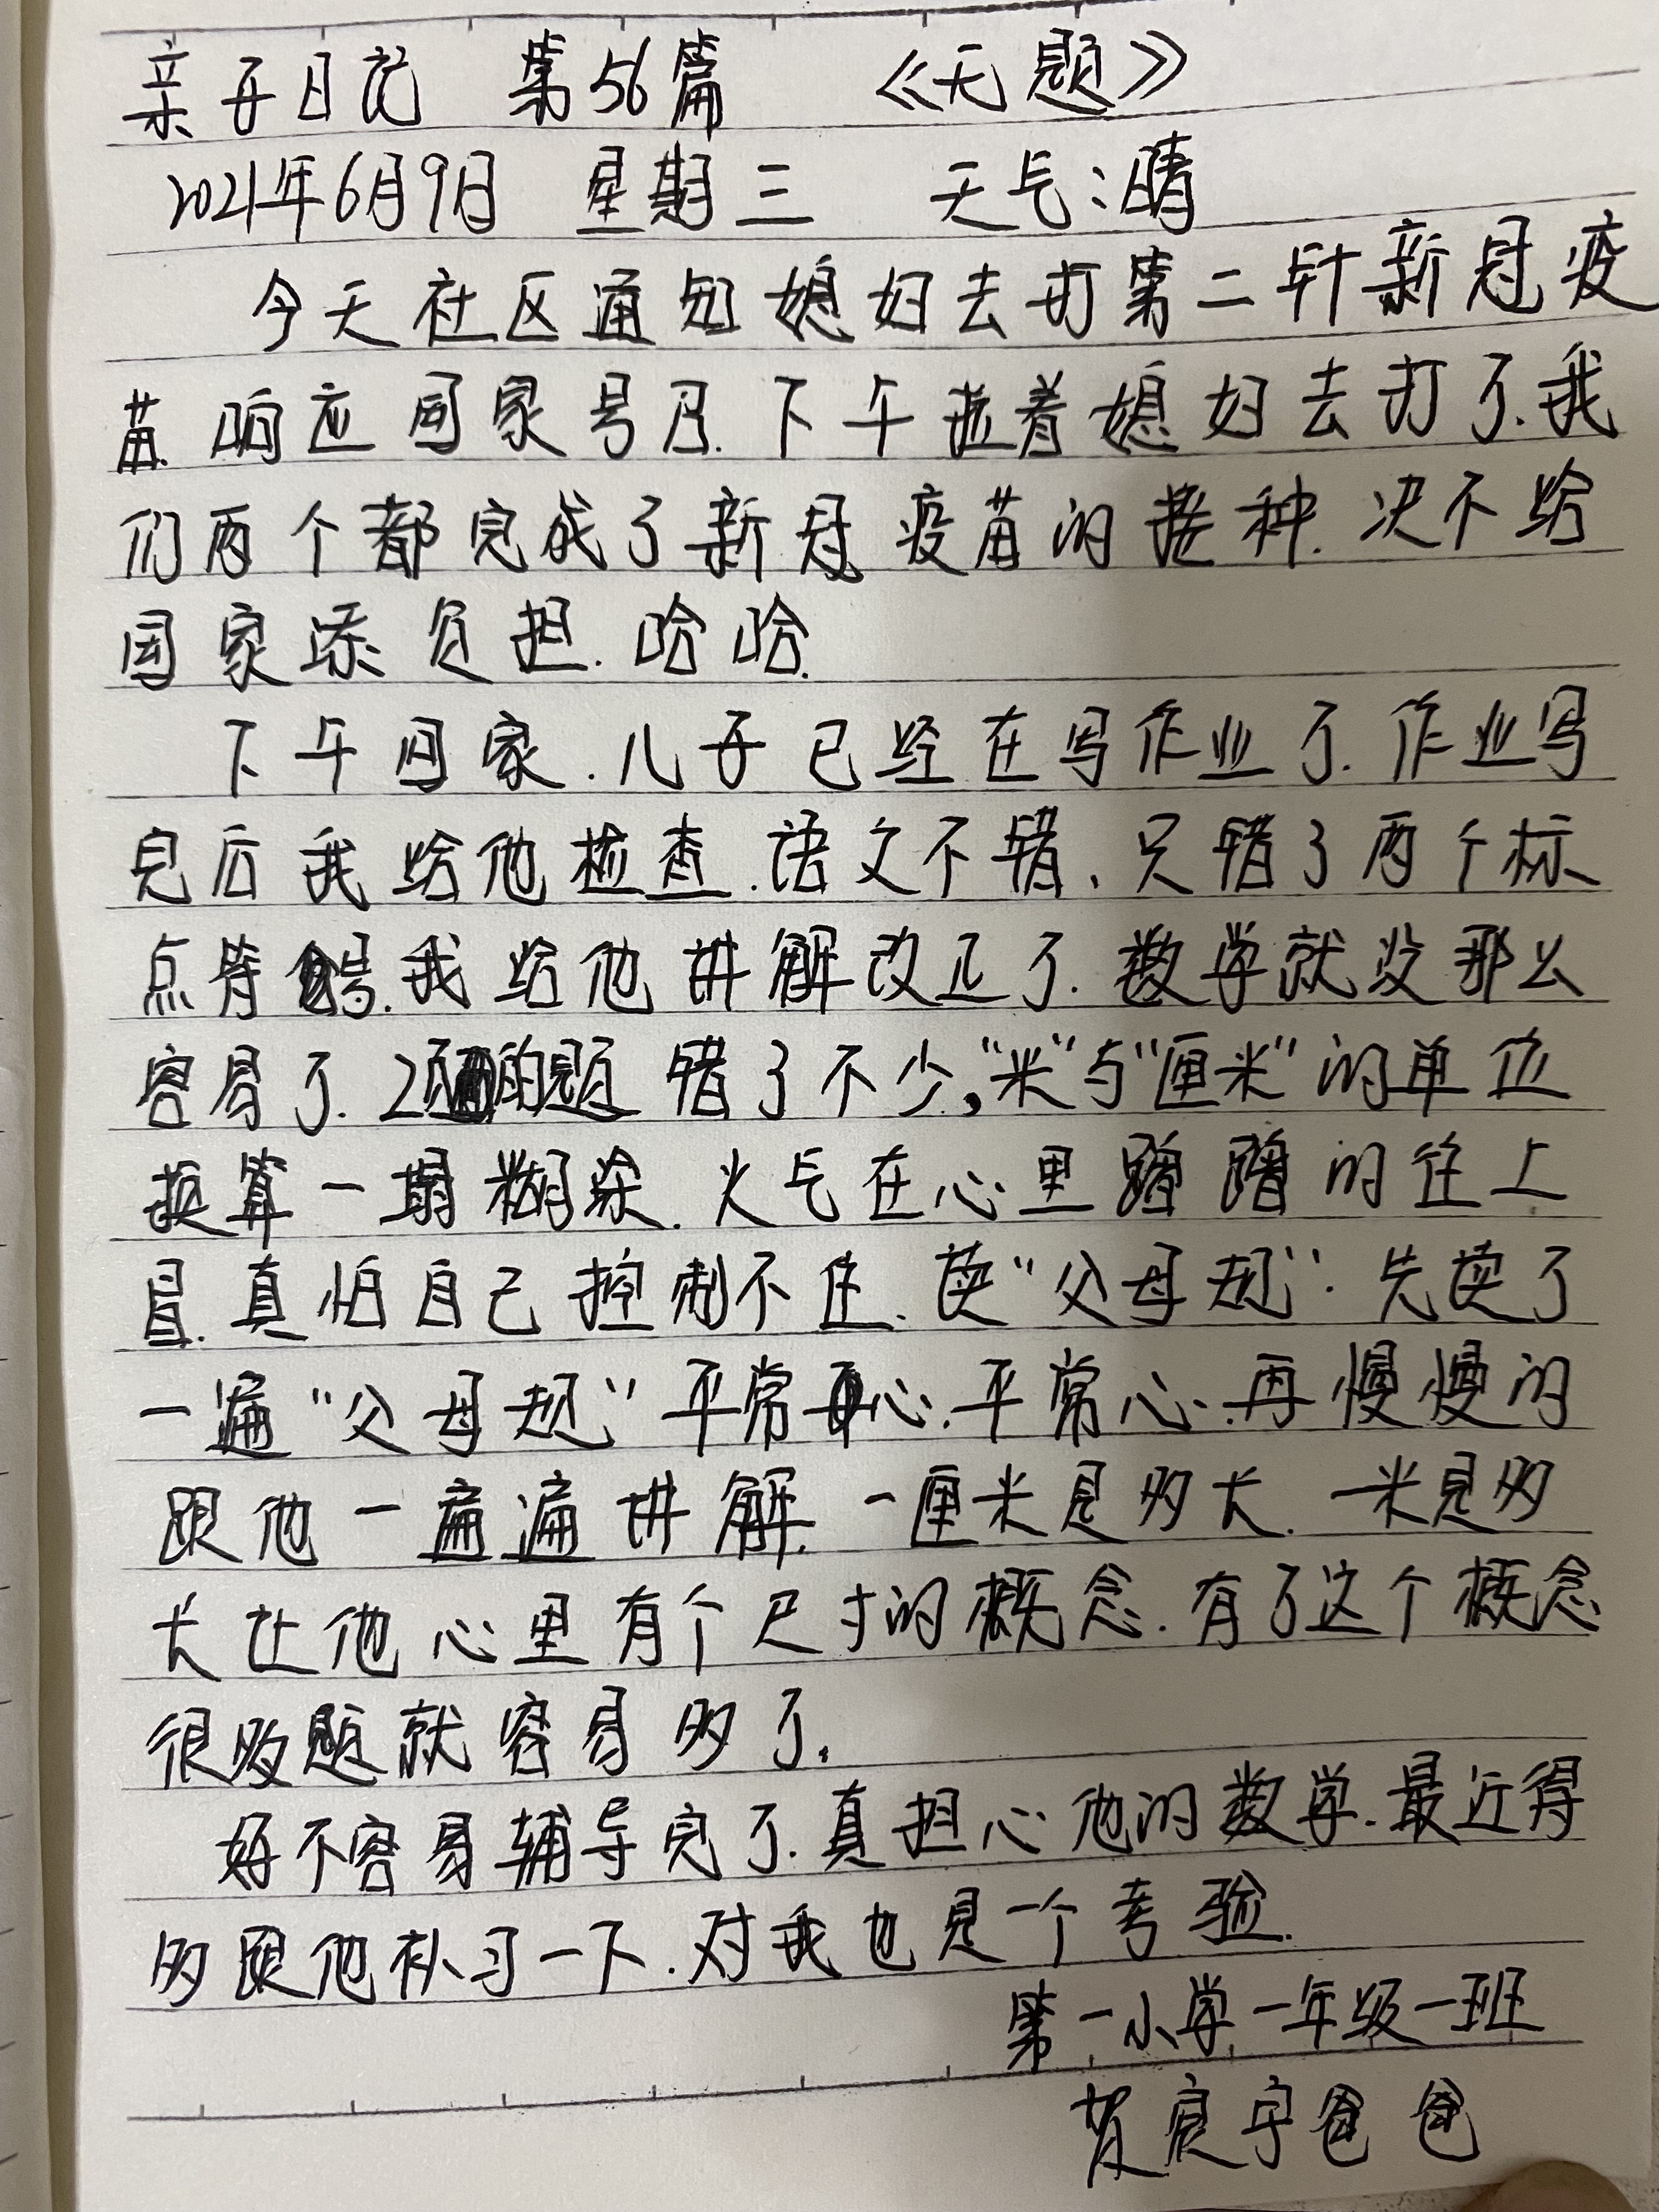 亲子日记 第56篇 《无题》
2021年6月9日 星期三 天气:晴
今天社区通知媳妇去打第二针新冠疫
苗.响应国家号召.下午拉着媳妇去打了.我
们两个都完成了新冠疫苗的接种.决不给
国家添负担.哈哈.
下午回家.儿子已经在写作业了.作业写
完后我给他检查.语文不错、只错了两个标
点符号.我给他讲解改正了.数学就没那么
容易了.2页的题错了不少,“米”与“厘米”的单位
换算一塌糊涂.火气在心里蹭蹭的往上
冒.真怕自己控制不住.读“父母规”.先读了
一遍“父母规”平常心.平常心.再慢慢的
跟他一遍遍讲解.一厘米是多长.一米是多
长让他心里有个尺寸的概念.有了这个概念
很多题就容易多了.
好不容易辅导完了.真担心他的数学.最近得
多跟他补习一下.对我也是一个考验.
第一小学一年级一班
贺宸宇爸爸